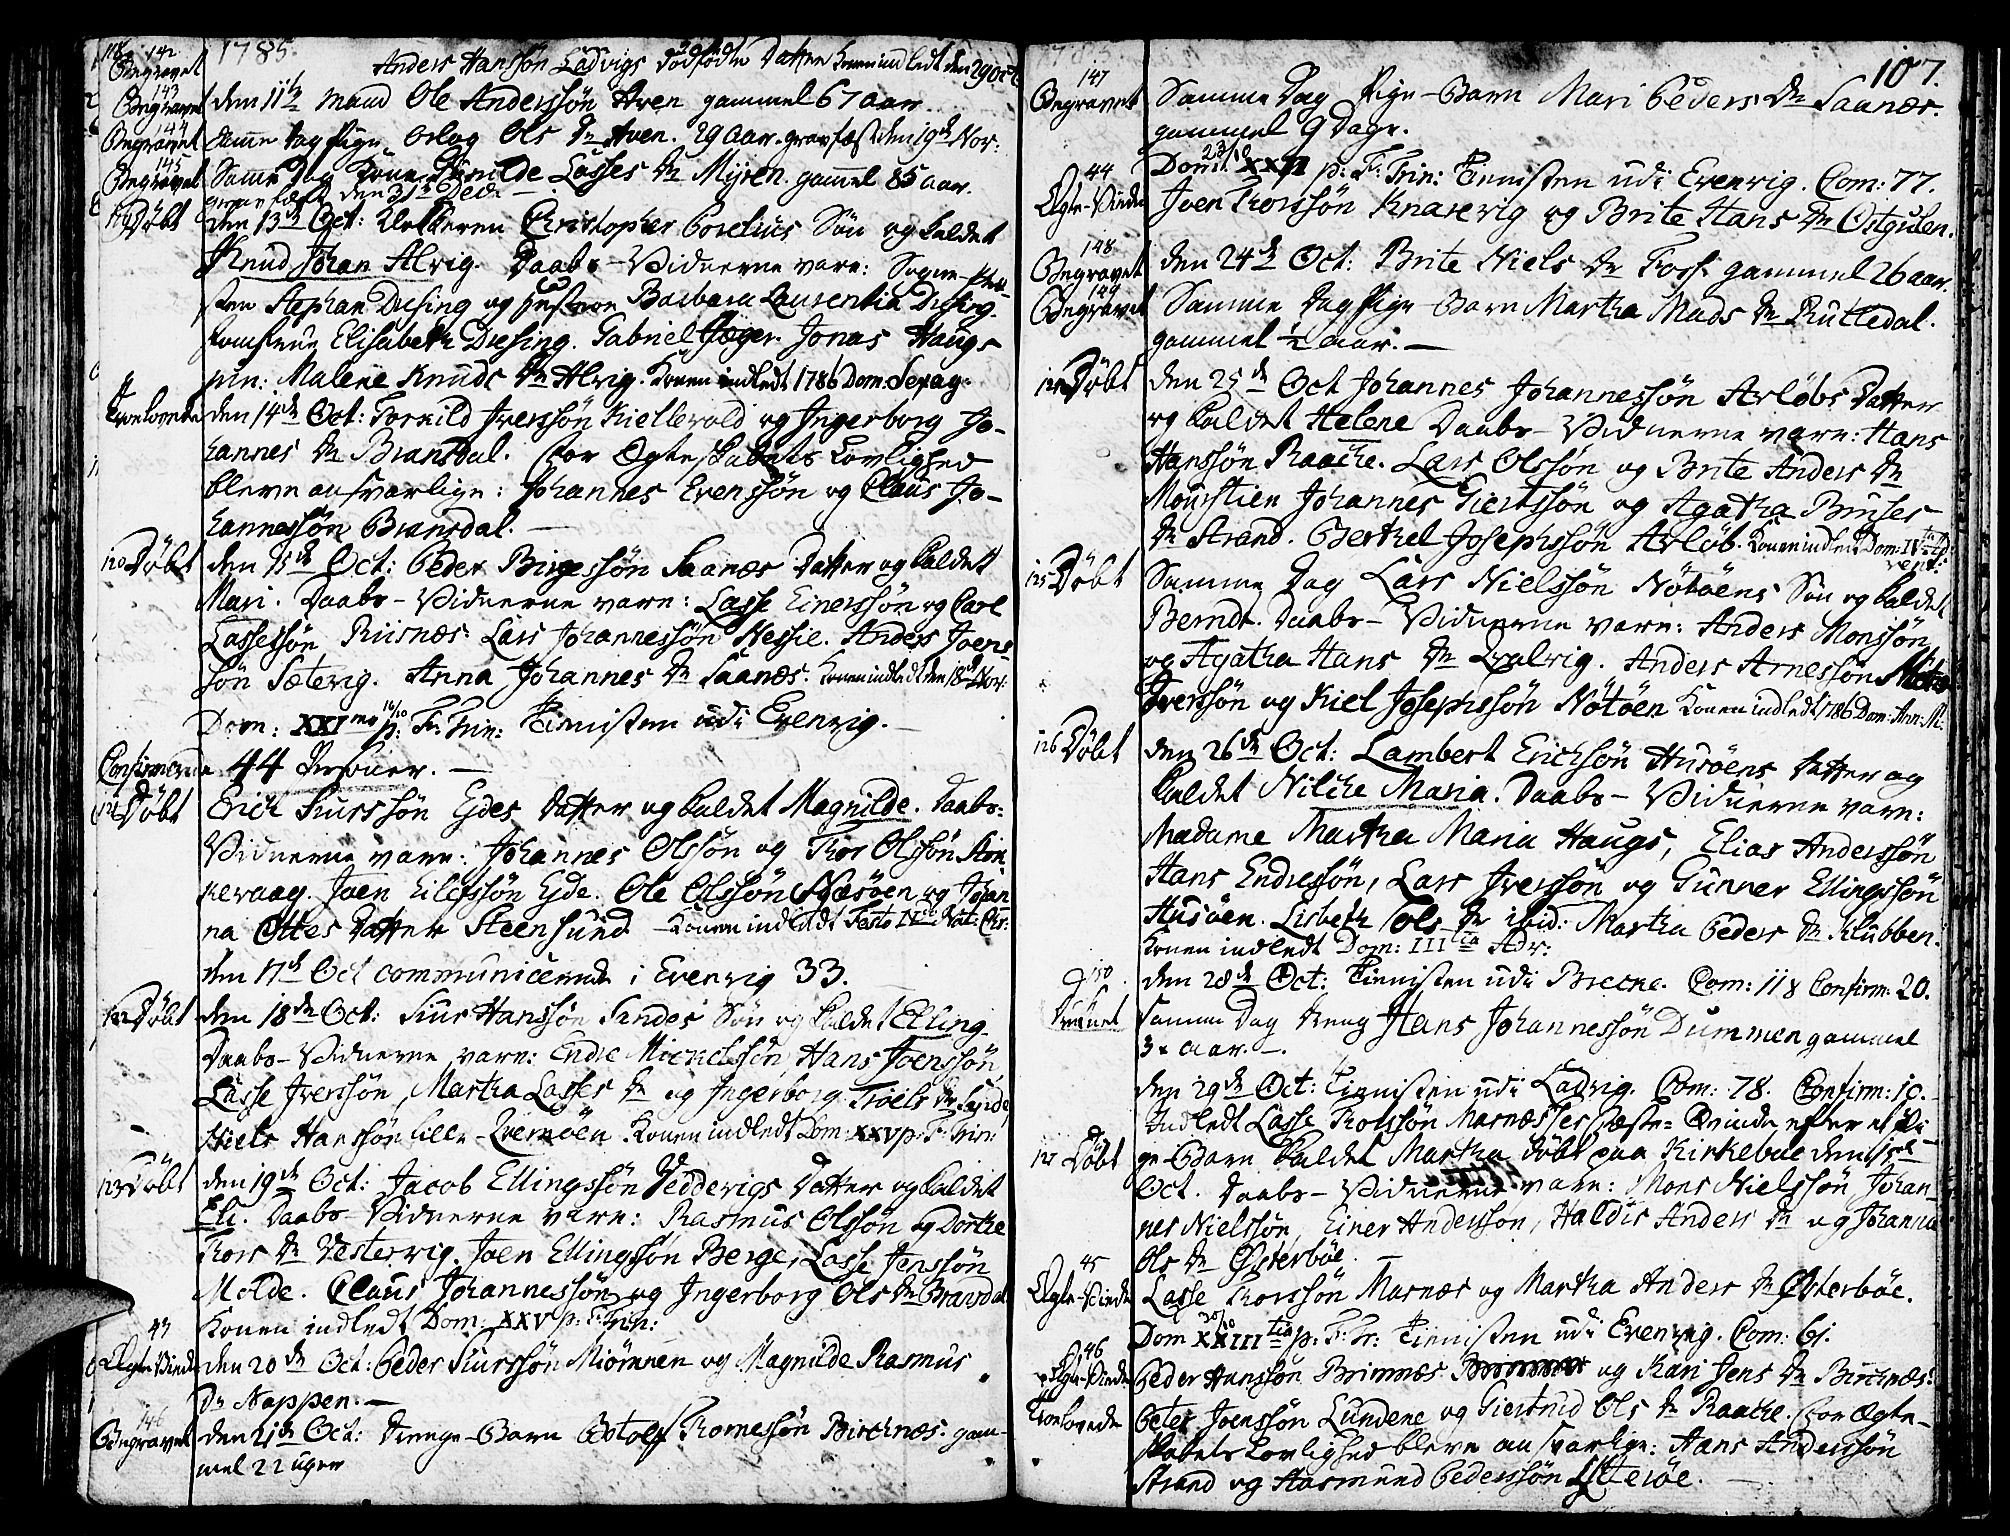 118 142 1785.
Begravet Anders Hanssön Ladvigs Dödfödte Datter Konen indledt den 29 Oct
143
Begravet den 11te Mand Ole Anderssön Aven gammel 67 aar.
144
Begravet Samme dag Pige Oslag Ols Dr Aven. 29 aar. gravfæst den 19de Nov:
145
Begravet Samme Dag Kone Lasses Dr Myren. gamel 85 aar.
gravfæst den 31te Dece —
119 Döbt den 13de Oct: Klokkeren Christopher Corelius Sön og kaldet
Knud Johan Alvig. Daabs-Vidnerne vare: Sogne-Præ-
sten Stephan Dresing og Hustroe Barbara Laurentia Dresing.
Jomfrue Elisabeth Dresing. Gabriel Jæger. Jonas Haugs
pen: Malene Knuds Dr Alvig. Konen indledt 1786 Dom: Sexag:
Trolovede den 14de Oct: Tornild Iverssön Kiellevold og Ingerborg Jo-
hannes Dr Bransdal. For Ægteskabets Lovlighed
bleve ansvarlige: Johannes Evenssön og Claus Jo-
hannessön Bransdal. —
120 Döbt den 15de Oct: Peder Birgessön Saanæs Datter og kaldet
Mari. Daabs-Vidnerne vare: Lasse Einerssön og Carl
Lassessön Riisnæs. Lars Johannessön Nessie. Anders Joens-
sön Sætevig. Anna Johannes Dr Saanæs. Konen indledt den 18de Nov:
Dom: XXI ma 16/10 p: F: Trin: Tienisten udi Evenvig. —
Confirmerede 44 Personer. —
121 Döbt Erich Siurssön Ejdes Datter og kaldet Magnilde. Daabs-
Vidnerne vare: Johannes Olssön og Thor Olssön Ston-
nevaag. Joen Eilefssön Ejde. Ole Olssön Næsöen og Johan-
na Ottes Datter Steensund. Konen indledt Festo II Nat: Chr:
den 17de Oct communicerede i Evenvig 33.
122 Döbt den 18de Oct: Siur Hanssön Sundes Sön og kaldet Elling.
Daabs-Vidnerne vare: Endre Michelssön, Hans Joenssön,
Lasse Iverssön, Martha Lasses Dr og Ingerborg Troels Dr Sunde,
Niels Hanssön lille-Evenöen. Konen indledt Dom: XXV p: F: Trin:
123 Döbt den 19de Oct: Jacob Ellingssön Vedderigs Datter og kaldet
Eli. Daabs-Vidnerne vare: Rasmus Olssön og Dorthe
Thors Dr Vestervig. Joen Ellingssön Berge, Lasse Jenssön
Molde. Claus Johannessön og Ingerborg Ols Dr Bransdal
Konen indledt Dom: XXV p: F: Trin:
43
Ægte-Viede den 20de Oct: Peder Siurssön Miömnen og Magnilde Rasmus
Dr Nappen. —
146
Begravet den 21de Oct: Drenge-Barn Botolf Thomessön Birchnæs. gam-
mel 22 uger
107.
147
Begravet Samme Dag Pige-Barn Mari Peders Dr Saanæs.
gammel 9 Dage.
Domi: 23/10 XXII p: F: Trin: Tienisten udi Evenvig. Com: 77.
44
Ægte-Viede Joen Thorssön Knarvig og Brite Hans Dr Östgulen.
148
Begravet den 24de Oct: Brite Niels Dr Foss. gammel 26 aar.
149
Begravet Samme Dag Pige-Barn Martha Mads Dr Ruttedal.
gammel ½ aar. —
124 Döbt den 25de Oct Johannes Johannessön Arlöbs Datter
og kaldet Helene Daabs-Vidnerne vare: Hans
Hanssön Raache. Lars Olssön og Brite Anders Dr
Mouistien Johannes Giertssön og Agatha Bruses
Dr Strand. Berthel Josephssön Arlöb. Konen indledt Dom: IV ta Ad-
vent:
125 Döbt Samme Dag Lars Nielssön Nötöens Sön og kaldet
Berndt. Daabs-Vidnerne vare: Anders Monssön
og Agatha Hans Dr Qvalvig. Anders Arnessön
Iverssön og Kiel Josephssön Nötöen Konen indledt 1786 Dom: Ann: M.
126 Döbt den 26de Oct: Lambert Erichssön Husöens Datter og
kaldet Nilche Maria. Daabs-Vidnerne vare:
Madame Martha Maria Haugs, Elias Anderssön
Hans Endressön, Lars Iverssön og Gunner Ellingssön
Husöen. Lisbeth Ols Dr ibid: Martha Peders Dr Klubben.
Konen indledt Dom: III tia Adv:
den 28de Oct: Tienisten udi Breche. Com: 118 Confirm: 20.
150
Samme Dag Dreng Hans Johannessön Dummen gammel
3 aar. —
den 29de Oct: Tienisten udi Ladvig. Com: 78. Confirm: 10.
Indledt Lasse Thorssön Marnæsses Fæste-Qvinde efter et Pi-
127 Döbt ge-Barn kaldet Martha döbt paa Kirkeboe den 15de
Oct. Daabs-Vidnerne vare: Mons Nielssön Johan-
nes Nielssön, Einer Anderssön, Haldis Anders Dr og Johanna
Ols Dr Österböe. —
45
Ægte-Viede Lasse Thorssön Marnæs og Martha Anders Dr Österböe.
Dom 30/10 XXIII tia p: F: Tr: Tienisten udi Evenvig. Com: 61.
46
Ægte-Viede Peder Hanssön Brimnæs og Kari Jens Dr Birchnæs.
Trolovede Peter Joenssön Lundene og Giertrud Ols Dr Raache. For Ægte-
skabets Lovlighed bleve ansvarlige: Hans Anderssön
Strand og Aasmund Pederssön Ytteröe. —